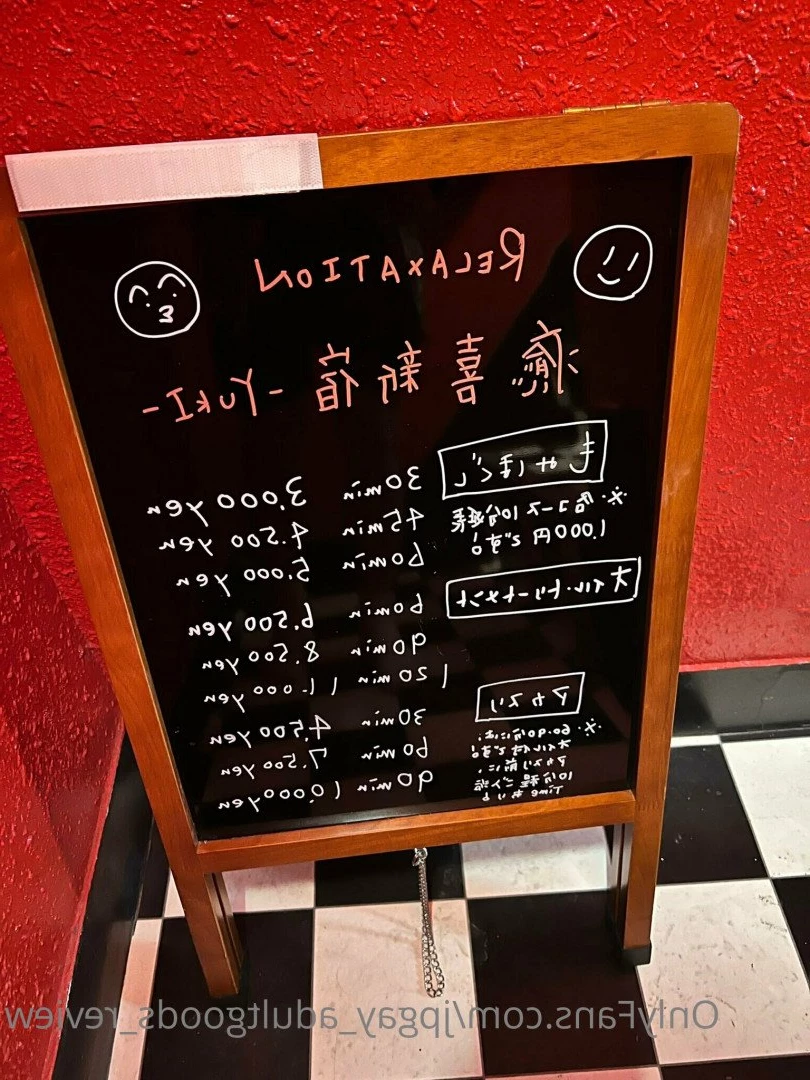 RELAXATION
癒喜新宿 -YUKI-
もみほぐし
※.各コース10分延長
1,000円です!
30min 3,000yen
45min 4,500yen
60min 5,000yen
オイル・トリートメント
60min 6,500yen
90min 8,500yen
120min 11,000yen
アカスリ
※.60.90分には、
オイル付です!
アカスリ前に、
10分程ご入浴
Timeあり♪
30min 4,500yen
60min 7,500yen
90min 10,000yen
OnlyFans.com/jpgay_adultgoods_review